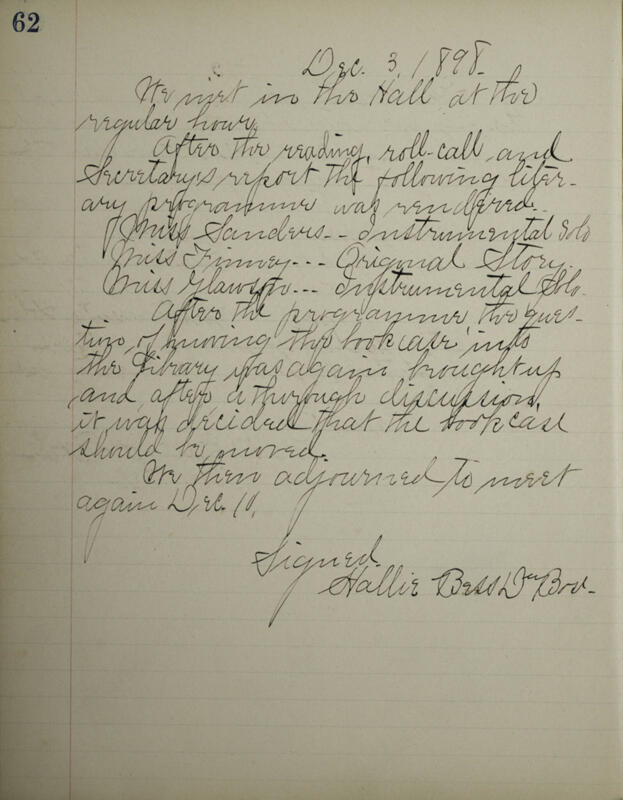 62
Dec. 3, 1898.
We met in the Hall at the
regular hour.
After the reading, roll-call and
Secretary's report the following liter-
ary programme was rendered.
Miss Sanders-- Instrumental Solo
Miss Finney--- Original Story.
Miss Glawson--- Instrumental Solo.
After the programme the ques-
tion of moving the bookcase into
the Library was again brought up
and after a thorough discussion,
it was decided that the bookcase
should be moved.
We then adjourned to meet
again Dec. 10.
Signed.
Hallie Bess